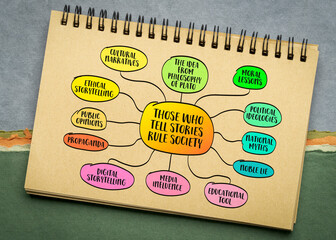 CULTURAL
NARRATIVES
THE IDEA
FROM
PHILOSOPHY
OF PLATO
MORAL
LESSONS
ETHICAL
STORYTELLING
POLITICAL
IDEOLOGIES
PUBLIC
OPINIONS
THOSE WHO
TELL STORIES
RULE SOCIETY
NATIONAL
MYTHS
PROPAGANDA
NOBLE LIE
DIGITAL
STORYTELLING
MEDIA
INFLUENCE
EDUCATIONAL
TOOL